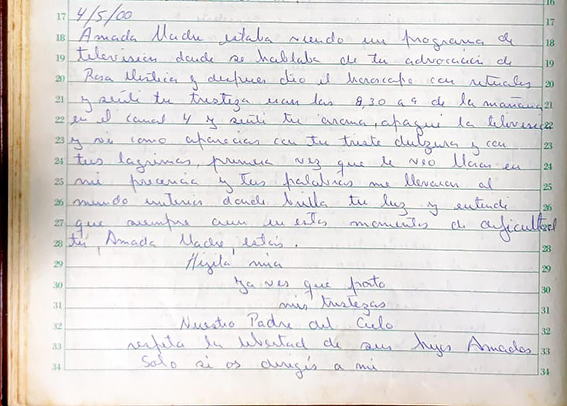 16
17 4/5/00
18 Amada Madre estaba viendo un programa de
19 television donde se hablaba de tu advocación de
20 Rosa Mistica y despues dio el horoscopo con rituales
21 y senti tu tristeza eran las 8,30 a 9 de la manana
22 en el canal 4 y senti tu aroma, apagué la television
23 y vi como aparecias con tu triste dulzura y con
24 tus lagrimas, primera vez que te veo llorar en
25 mi precencia y tus palabras me llevaron al
26 mundo interior donde brilla tu luz y entendi
27 que siempre aun en estos momentos de dificultad
28 tú, Amada Madre, estás.
29 Hijita mia
30 ya ves que porto
31 mis tristezas
32 Nuestro Padre del Cielo
33 respeta la libertad de sus hijos Amados
34 Solo si os dirigís a mi
16
17
18
19
20
21
22
23
24
25
26
27
28
29
30
31
32
33
34